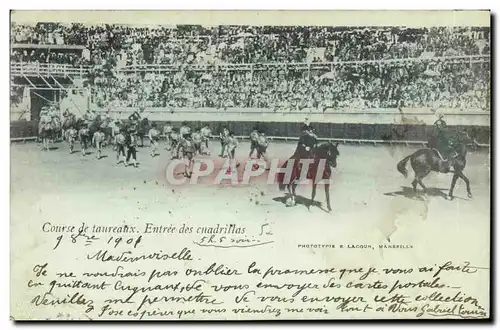 CPArama.com
Course de taureaux. Entrée des cuadrillas
9 8bre 1901 5h.5 soir
PHOTOTYPIE E LACOUR, MARSEILLE
Mademoiselle.
Je ne voudrais pas oublier la promesse que je vous ai faite
en quittant de vous envoyer des cartes postales.
Veuillez me permettre de vous envoyer cette collection
J'ose espérer que vous viendrez me voir à Nous Gabriel